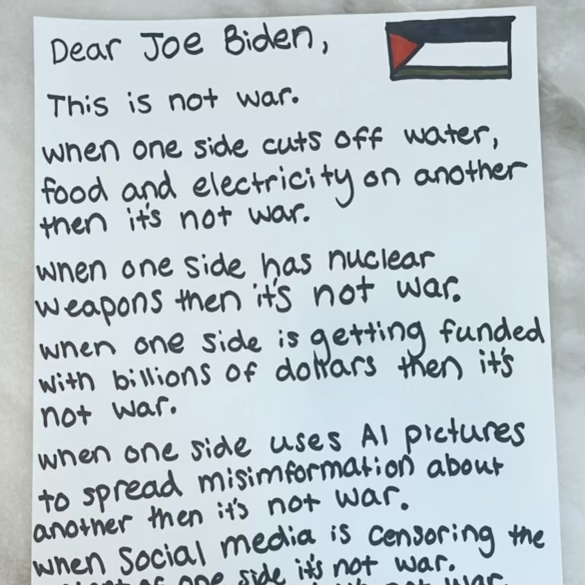 Dear Joe Biden,
This is not war.
when one side cuts off water,
food and electricity on another
then it's not war.
when one side has nuclear
weapons then it's not war.
when one side is getting funded
with billions of dollars then it's
not war.
when one side uses AI pictures
to spread misimformation about
another then it's not war.
when Social media is censoring the
one side it's not war.